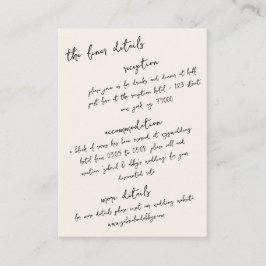 the finer details
reception
please join us for drinks and dinner at half
past five at the reception hotel - 123 street
new york, ny 79000
accommodation
a block of rooms has been reserved at
hotel from to please call and
mention wedding for your
discounted rate.
more details
for more details please visit our wedding website